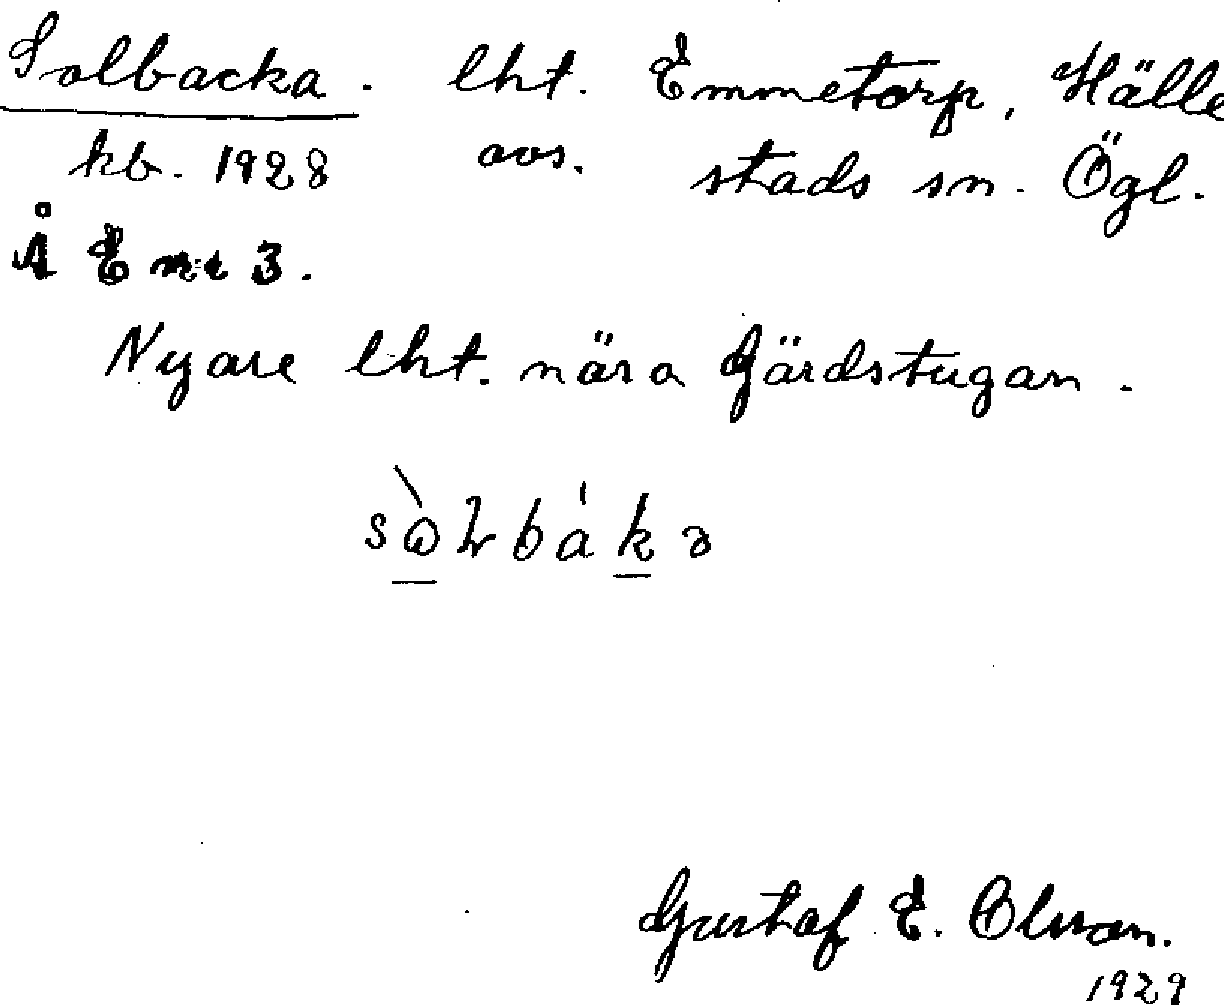 Solbacka. lht. Emmetorp, Hälle
kb. 1928 avs. stads sn. Ögl.
Å E nr 3.
Nyare lht. nära Gärdstugan.
Gustaf E. Olsson.
1929